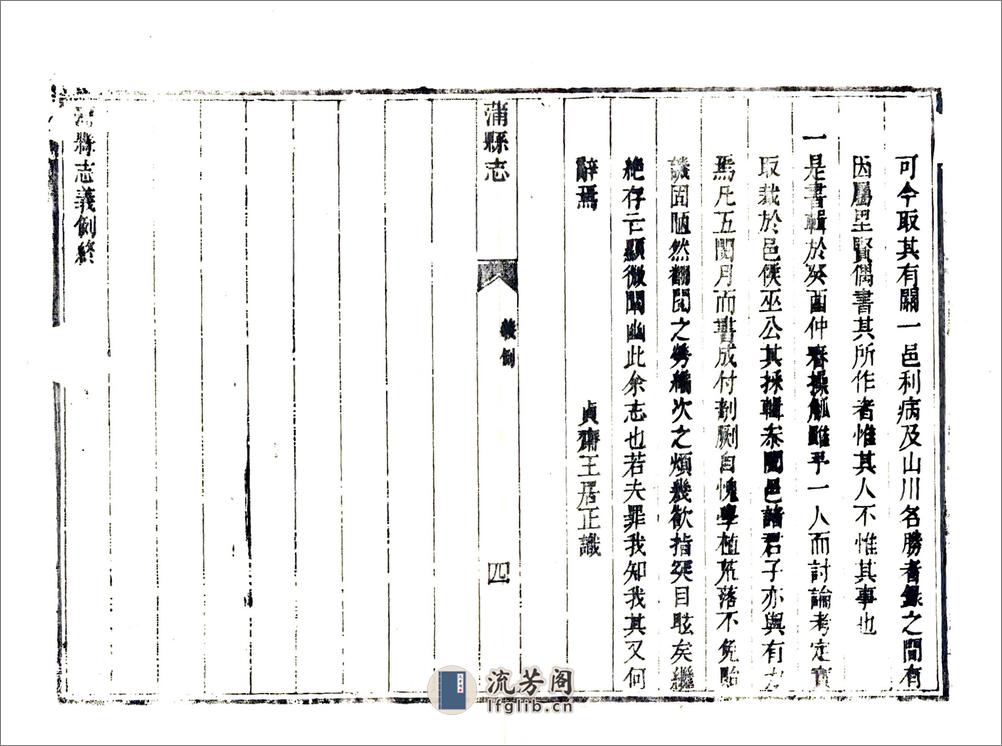 可今取其有關一邑利病及山川名勝者錄之間有
因屬里賢偶書其所作者惟其人不惟其事也
一是書輯於癸酉仲春操觚雖乎一人而討論考定實
取裁於邑侯巫公其採輯泰聞邑諸君子亦與有力
焉凡五閱月而書成付剞劂自愧學植荒落不免貽
譏固陋然翻閱之勞編次之煩幾欲指突目眩矣繼
絶存亡顯微闡幽此余志也若夫罪我知我其又何
辭焉
貞齋王居正識
蒲縣志
義例
四
蒲縣志義例終
流芳阁
lfglib.cn